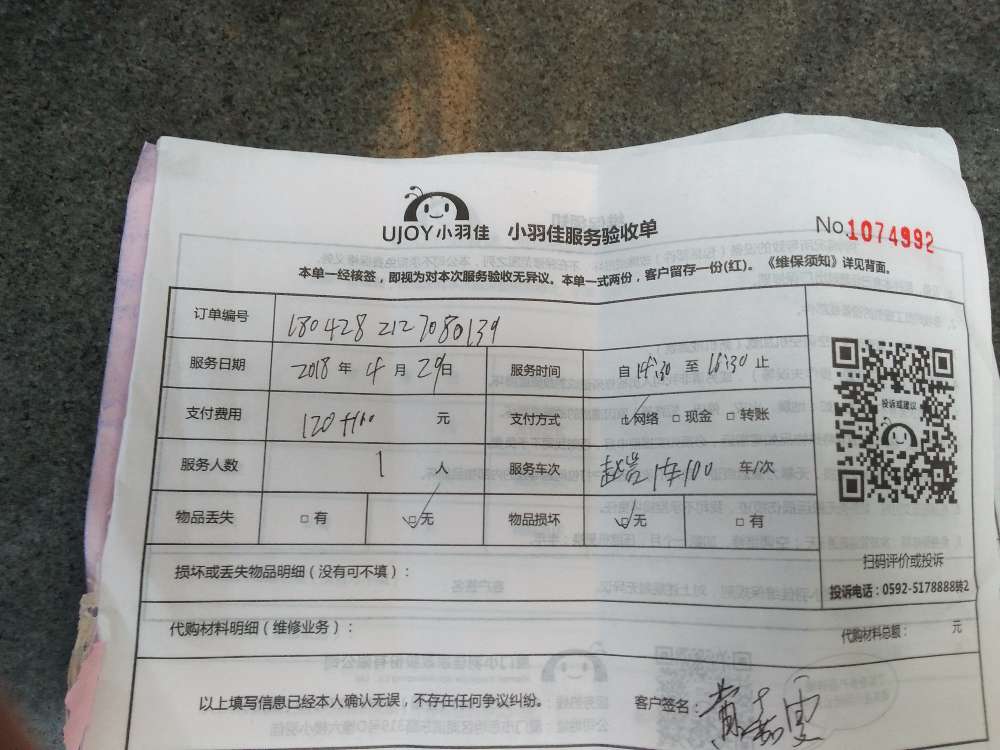 UJOY小羽佳 小羽佳服务验收单 No.1074992
本单一经核签，即视为对本次服务验收无异议。本单一式两份，客户留存一份(红)。《维保须知》详见背面。
订单编号 180428 2127080139
服务日期 2018 年 4 月 29 日 服务时间 自 14:30 至 16:30 止
支付费用 120 元 支付方式 网络 现金 转账
服务人数 1 人 服务车次 1车100 车/次
物品丢失 有 无 物品损坏 无 有
投诉或建议
扫码评价或投诉
损坏或丢失物品明细（没有可不填）：
投诉电话：0592-5178888转2
代购材料明细（维修业务）：
代购材料总额： 元
以上填写信息已经本人确认无误，不存在任何争议纠纷。 客户签名：